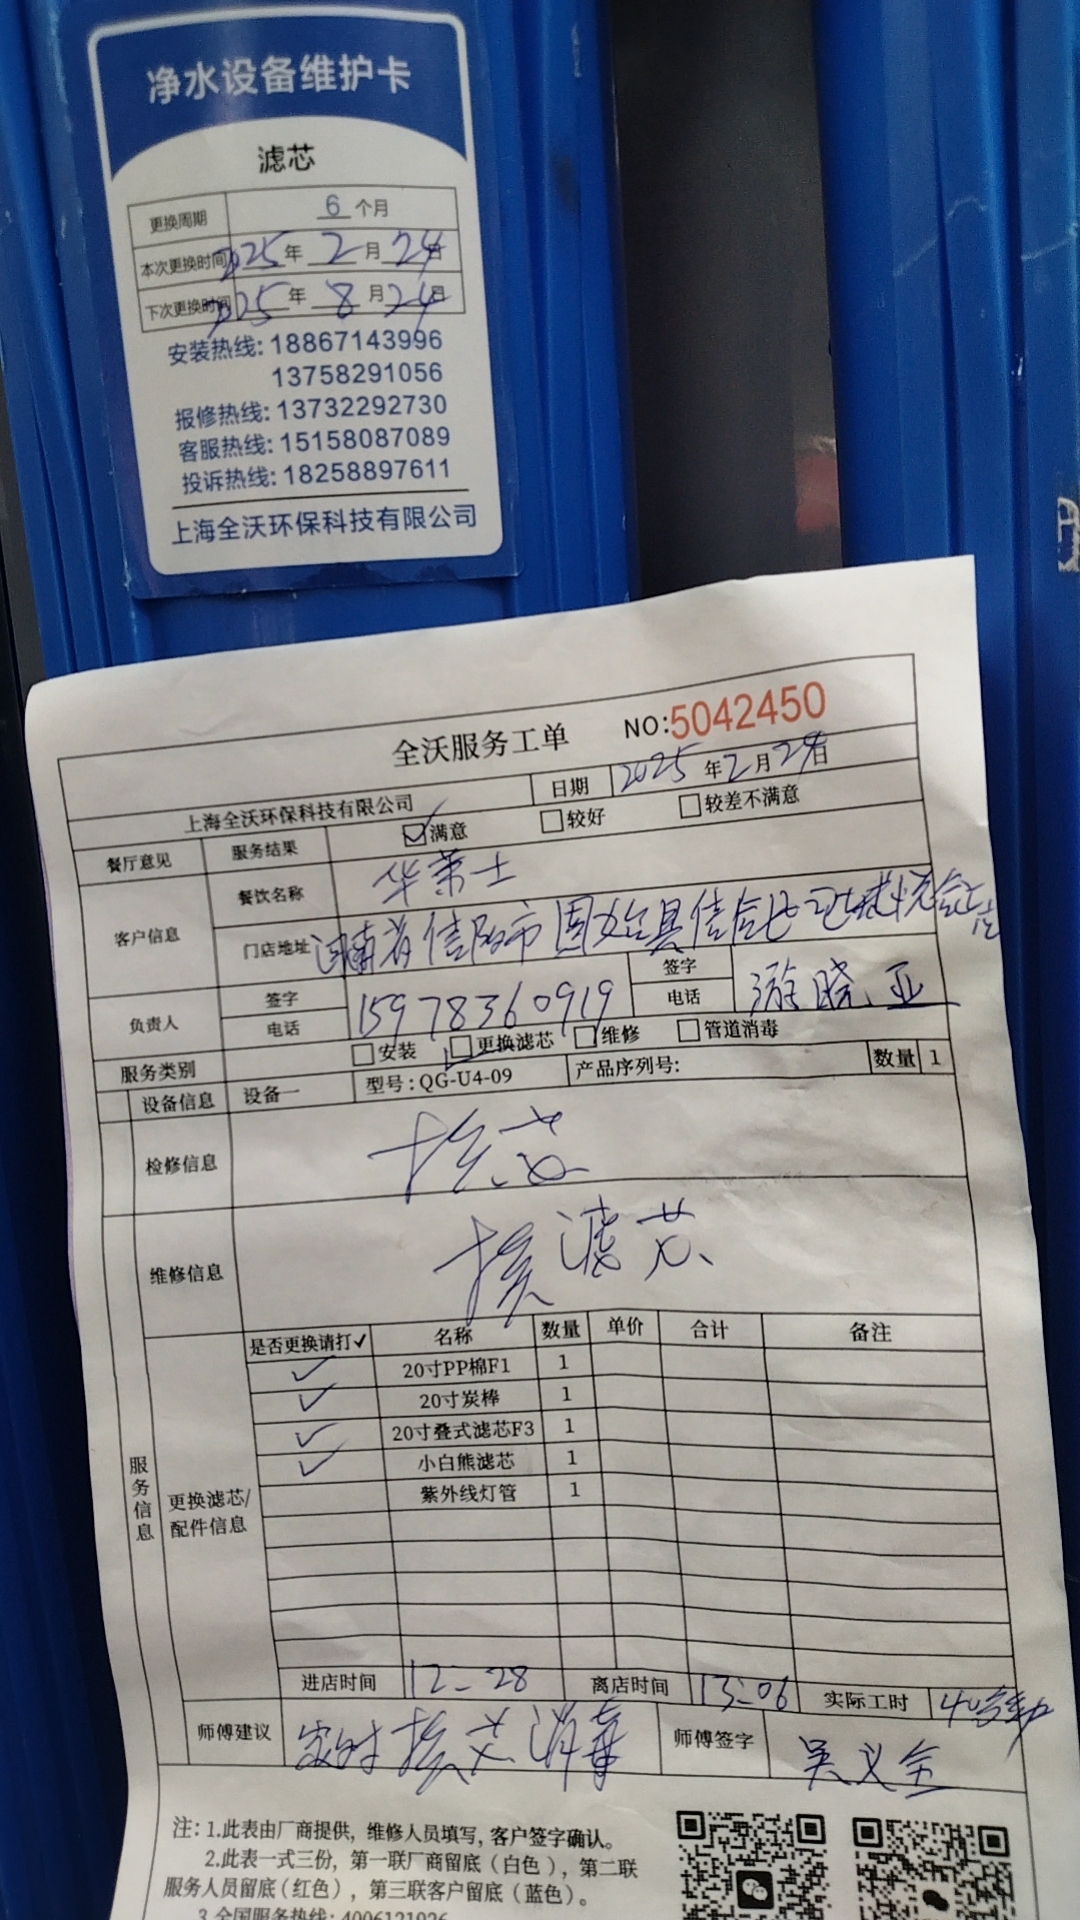 净水设备维护卡
滤芯
更换周期 6 个月
本次更换时间 2025 年 2 月 24 日
下次更换时间 2025 年 8 月 24 日
安装热线: 18867143996
13758291056
报修热线: 13732292730
客服热线: 15158087089
投诉热线: 18258897611
上海全沃环保科技有限公司
全沃服务工单 NO:5042450
上海全沃环保科技有限公司 日期 2025 年 2 月 24 日
餐厅意见 服务结果 满意 较好 较差不满意
客户信息 餐饮名称 华莱士
门店地址 河南省信阳市固始县信合
负责人 签字 电话 15978360919 签字 电话 游晓亚
服务类别 安装 更换滤芯 维修 管道消毒
设备信息 设备一 型号: QG-U4-09 产品序列号: 数量 1
检修信息 换芯
维修信息 换滤芯
服务信息
更换滤芯/配件信息
是否更换请打✓ 名称 数量 单价 合计 备注
✓ 20寸PP棉F1 1
✓ 20寸炭棒 1
✓ 20寸叠式滤芯F3 1
✓ 小白熊滤芯 1
紫外线灯管 1
进店时间 12:28 离店时间 13:06 实际工时 40分钟
师傅建议 定时换芯消毒 师傅签字 吴义全
注: 1.此表由厂商提供, 维修人员填写, 客户签字确认。
2.此表一式三份, 第一联厂商留底（白色）, 第二联
服务人员留底（红色）, 第三联客户留底（蓝色）。
3.全国服务热线: 4006121926